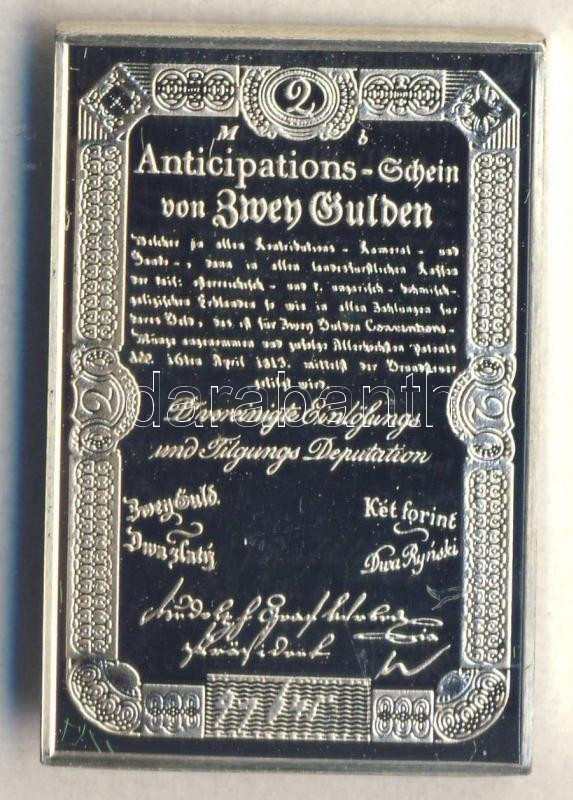 2
M b
Anticipations-Schein
von Zwey Gulden
Welcher in allen Kontributions-, Kameral- und
Banko-, dann in allen landesfürstlichen Kassen
der deutsch-österreichisch- und k. ungarisch- böhmisch-
galizischen Erblanden so wie in allen Zahlungen für
baares Geld, das ist für Zwey Gulden Conventions-
Münze angenommen und zufolge Allerhöchsten Patents
ddo. 16ten April 1813. mittelst der Grundsteuer
getilgt wird.
2 2
D. vereinigte Einlösungs
und Tilgungs Deputation
Zwey Guld. Két forint
Dwa Zlatý Dwa Ryński
Rudolph Graf
Präsident
darabanth